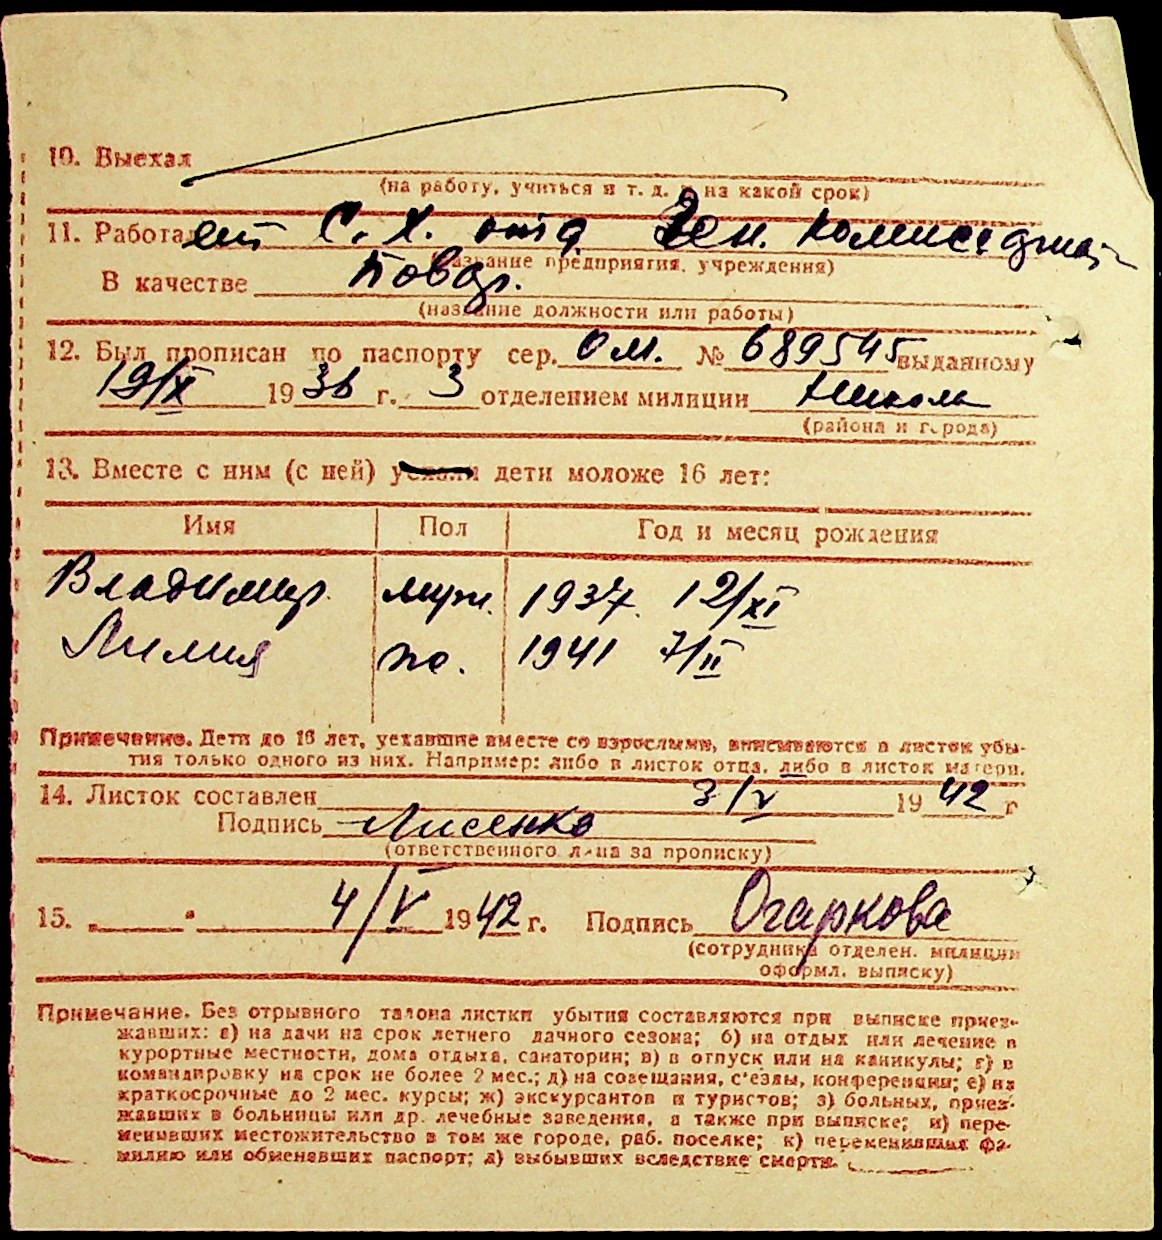 10. Выехал
(на работу, учиться и т. д. и на какой срок)
11. Работает С. Х. отд Зем.
(название предприятия, учреждения)
В качестве Повар.
(название должности или работы)
12. Был прописан по паспорту сер. ОМ. № 689545 выданному
19/X 1936 г. 3 отделением милиции
(района и города)
13. Вместе с ним (с ней) уехали дети моложе 16 лет:
Имя Пол Год и месяц рождения
Владимир муж. 1937. 12/XI
Лилия же. 1941 7/II
Примечание. Дети до 16 лет, уехавшие вместе со взрослыми, вписываются в листок убы-
тия только одного из них. Например: либо в листок отца, либо в листок матери.
14. Листок составлен 3/V 1942 г
Подпись Лисенко
(ответственного лица за прописку)
15. „ " 4/V 1942 г. Подпись Огаркова
(сотрудника отделен. милиции
оформл. выписку)
Примечание. Без отрывного талона листки убытия составляются при выписке приез-
жавших: а) на дачи на срок летнего дачного сезона; б) на отдых или лечение в
курортные местности, дома отдыха, санатории; в) в отпуск или на каникулы; г) в
командировку на срок не более 2 мес.; д) на совещания, с'езды, конференции; е) на
краткосрочные до 2 мес. курсы; ж) экскурсантов и туристов; з) больных, приез-
жавших в больницы или др. лечебные заведения, а также при выписке; и) пере-
менивших местожительство в том же городе, раб. поселке; к) переменивших фа-
милию или обменявших паспорт; л) выбывших вследствие смерти.